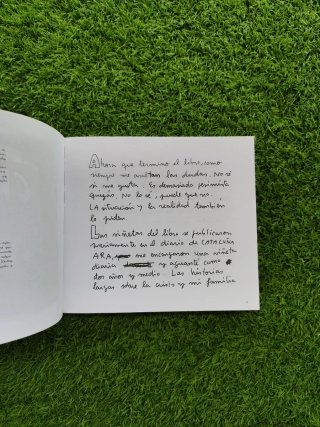 Ahora que termino el libro, como
siempre me asaltan las dudas. No sé
si me gusta. Es demasiado feminista
quizás, no lo sé, puede que no,
LA situación y la realidad también
lo piden.
Las viñetas del libro se publicaron
previamente en el diario de CATALUÑA
ARA, me encargaron una viñeta
diaria y aguanté como
dos años y medio. Las historias
largas sobre la crisis y mi familia